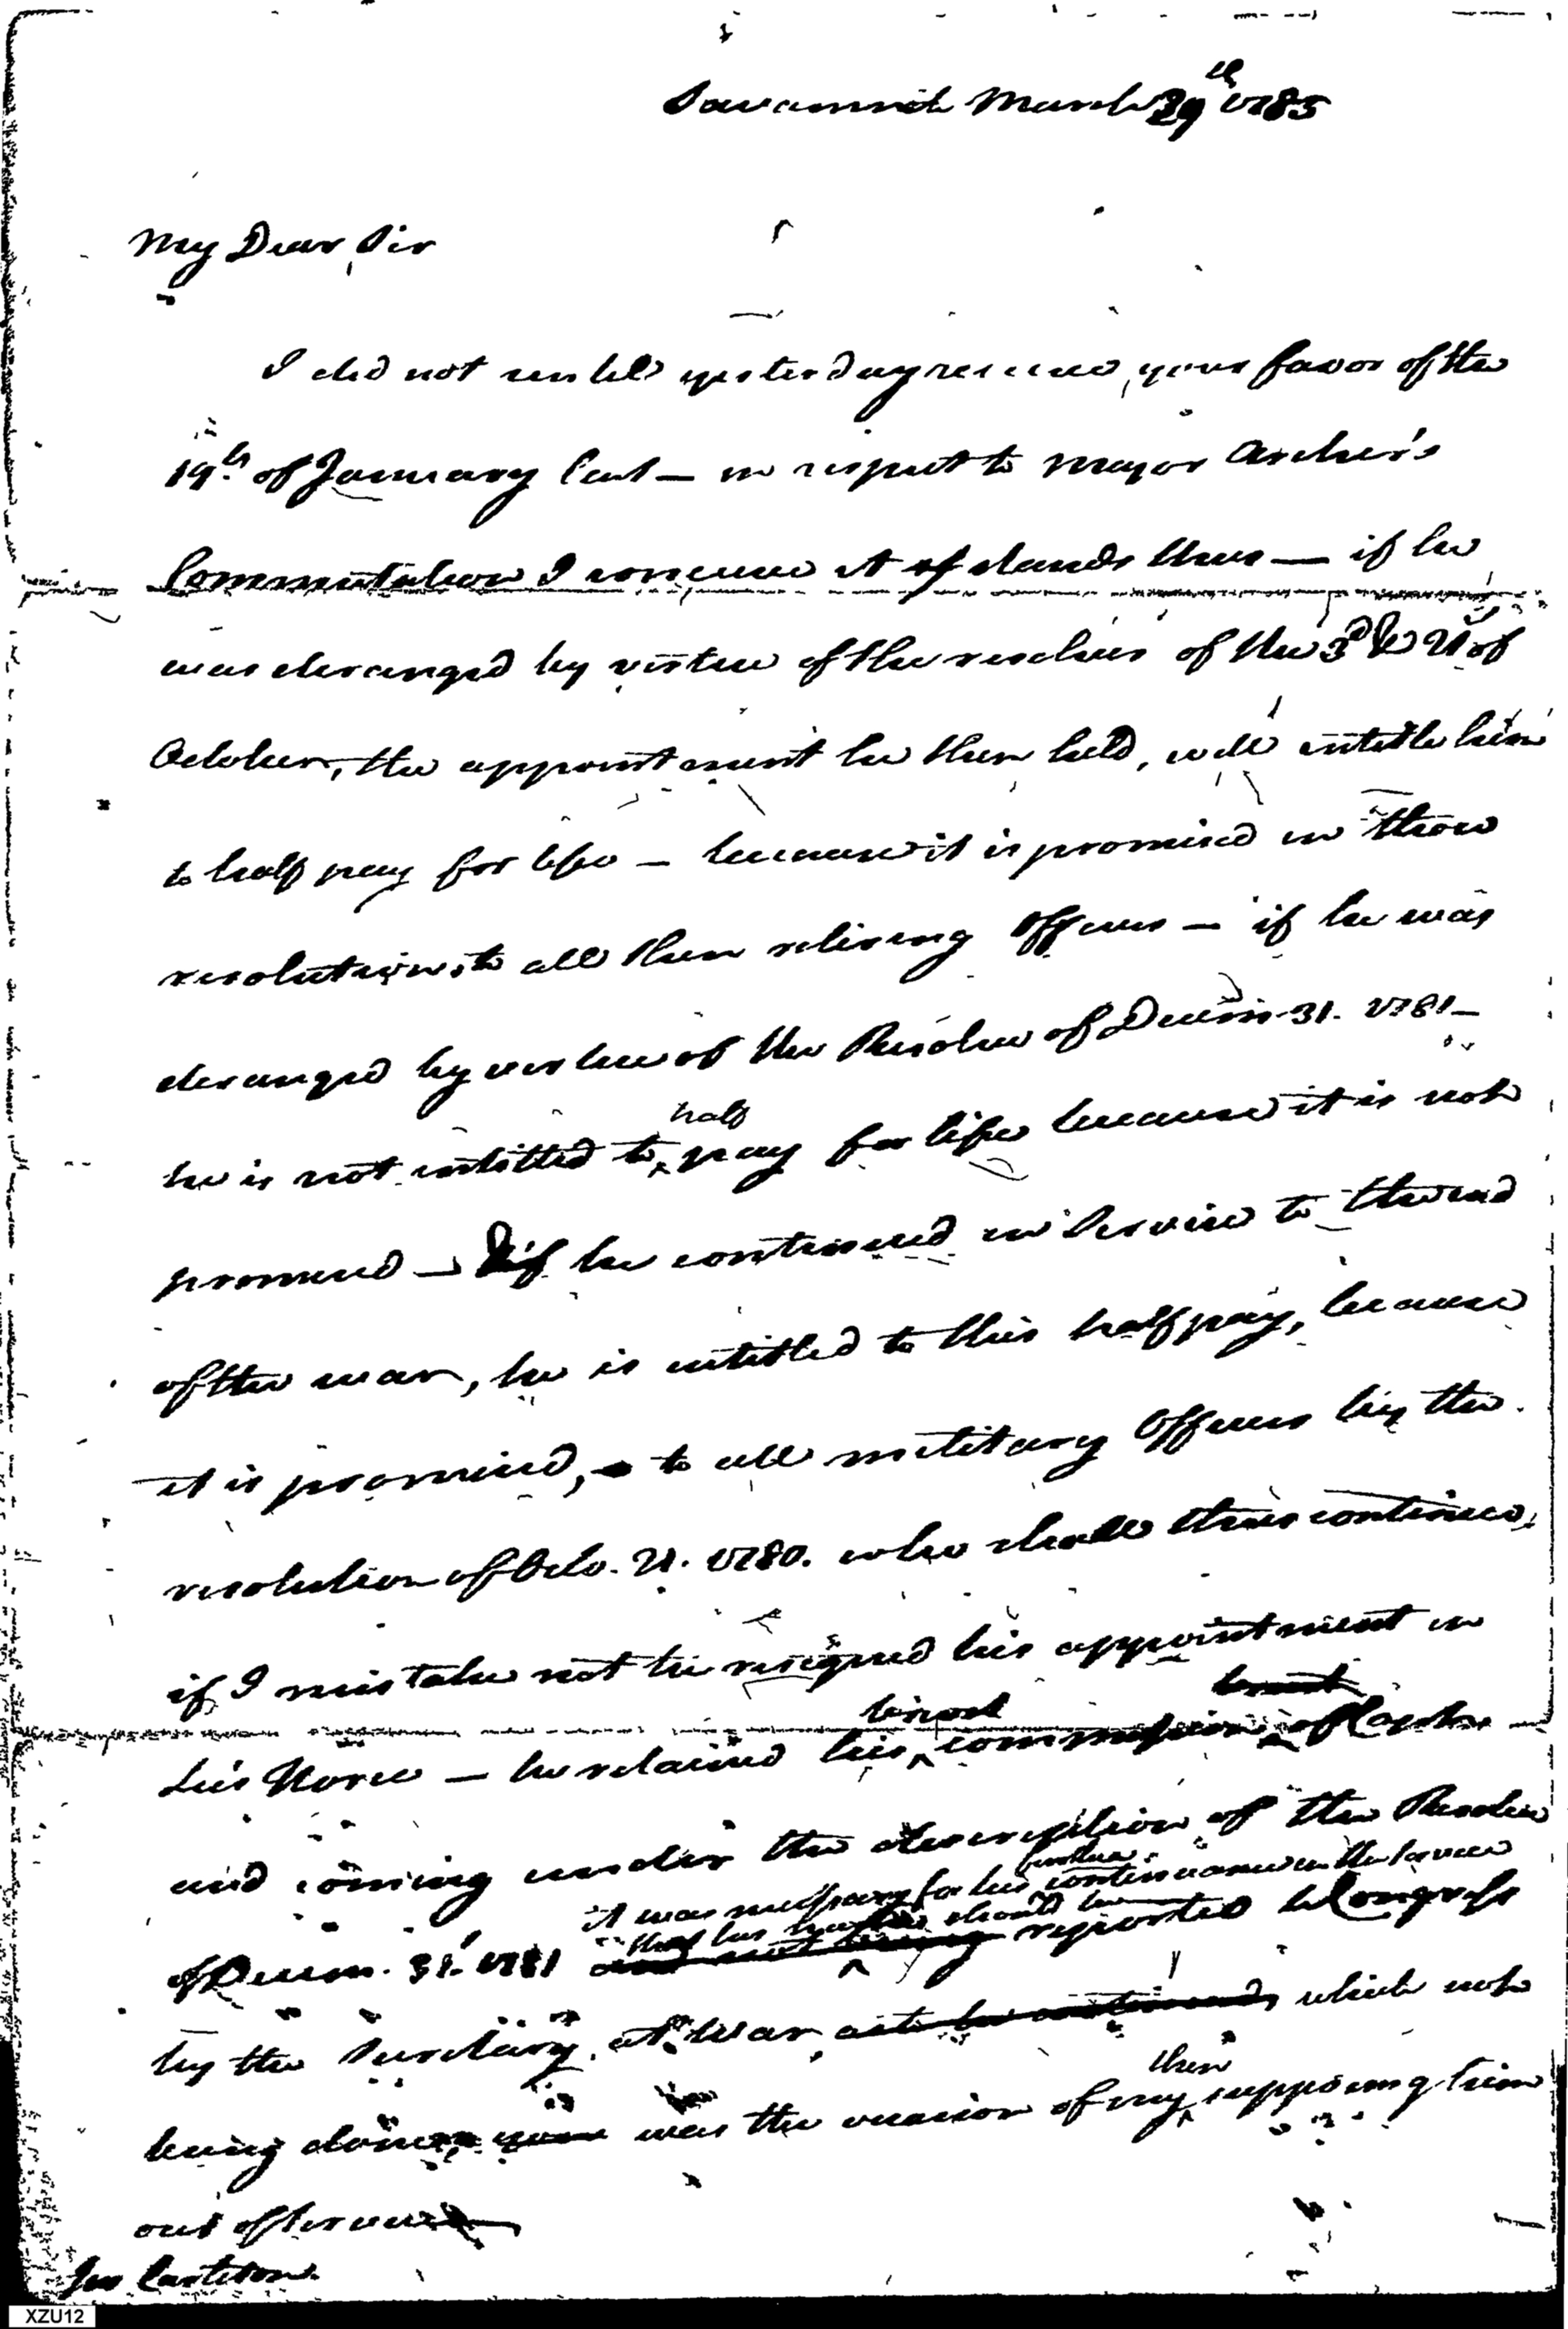 Savannah March 29th 1785
My Dear Sir
I did not untill yesterday receive your favor of the
19th of January last — in respect to Major Archer's
Commutation I conceive it stands thus — if he
was deranged by virtue of the resolves of the 3d & 21 of
October, the appointment he then held, will intitle him
to half pay for life — because it is promised in those
resolutions, to all then retiring Officers — if he was
deranged by virtue of the Resolve of Decem 31. 1781 —
he is not intitled to half pay for life because it is not
promised — & if he continued in Service to the end
of the war, he is intitled to this half pay, because
it is promised, to all military Officers by the
resolution of Octo. 21. 1780. who shall thus continue,
if I mistake not he resigned his appointment in
Lee's Horse — he retained his brevet commission of Captn
and coming under the description of the Resolve
of Decem. 31. 1781 it was necessary for his further continuance in the service
that his name should be reported to Congress
by the Secretary at War which not
being done was the occasion of my then supposing him
out of service
Jos Carleton.
XZU12